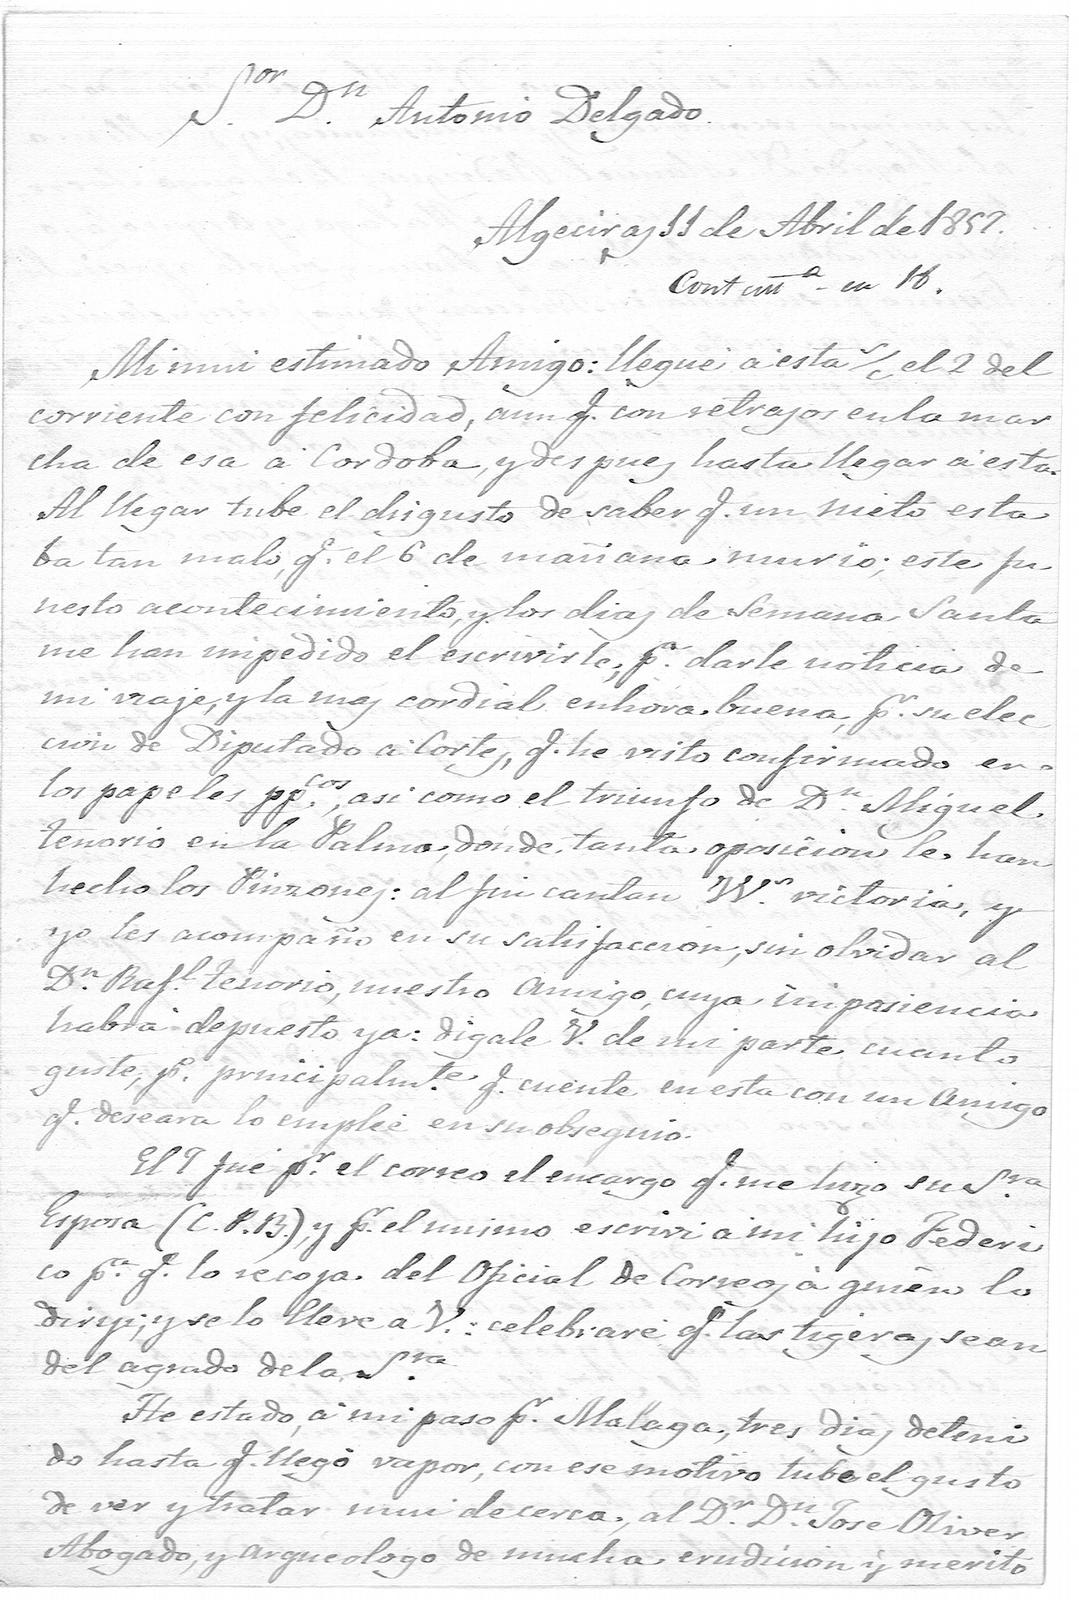 Sor Dn Antonio Delgado.
Algeciras 11 de Abril de 1857.
Contda en 16.
Mi mui estimado Amigo: llegué á esta s/c el 2 del
corriente con felicidad, aun q. con retrasos en la mar
cha de esa á Cordoba, y despues hasta llegar á esta.
Al llegar tube el disgusto de saber q. un nieto esta
ba tan malo, q. el 6 de mañana murió; este fu
nesto acontecimiento, y los dias de Semana Santa
me han impedido el escrivirle, pa. darle noticia de
mi viaje, y la mas cordial enhora buena, pr. su elec
cion de Diputado á Cortes, q. he visto confirmado en
los papeles ppcos, asi como el triunfo de Dn. Miguel
tenorio en la Palma, donde tanta oposicion le han
hecho los Pinzones: al fin cantan VVs. victoria, y
yo les acompaño en su satisfaccion, sin olvidar al
Dn. Rafl. tenorio, nuestro amigo, cuya impasiencia
habrá depuesto ya: digale V. de mi parte cuanto
guste, po. principalmte. q. cuente en esta con un amigo
q. deseara lo emplée en su obsequio.
El 7 fué pr. el correo el encargo q. me hizo su Sra.
Esposa (C.P.B.), y pr. el mismo escrivi á mi hijo Federi
co pa. q. lo recoja del Oficial de Correos á quién lo
dirijí; y se lo lleve a V.: celebraré q. las tigeras sean
del agrado de la Sra.
He estado, á mi paso pr. Malaga, tres dias deteni
do hasta q. llegó vapor, con ese motivo tube el gusto
de ver y tratar mui de cerca, al Dr. Dn. Jose Oliver
Abogado, y arqueologo de mucha erudicion y merito